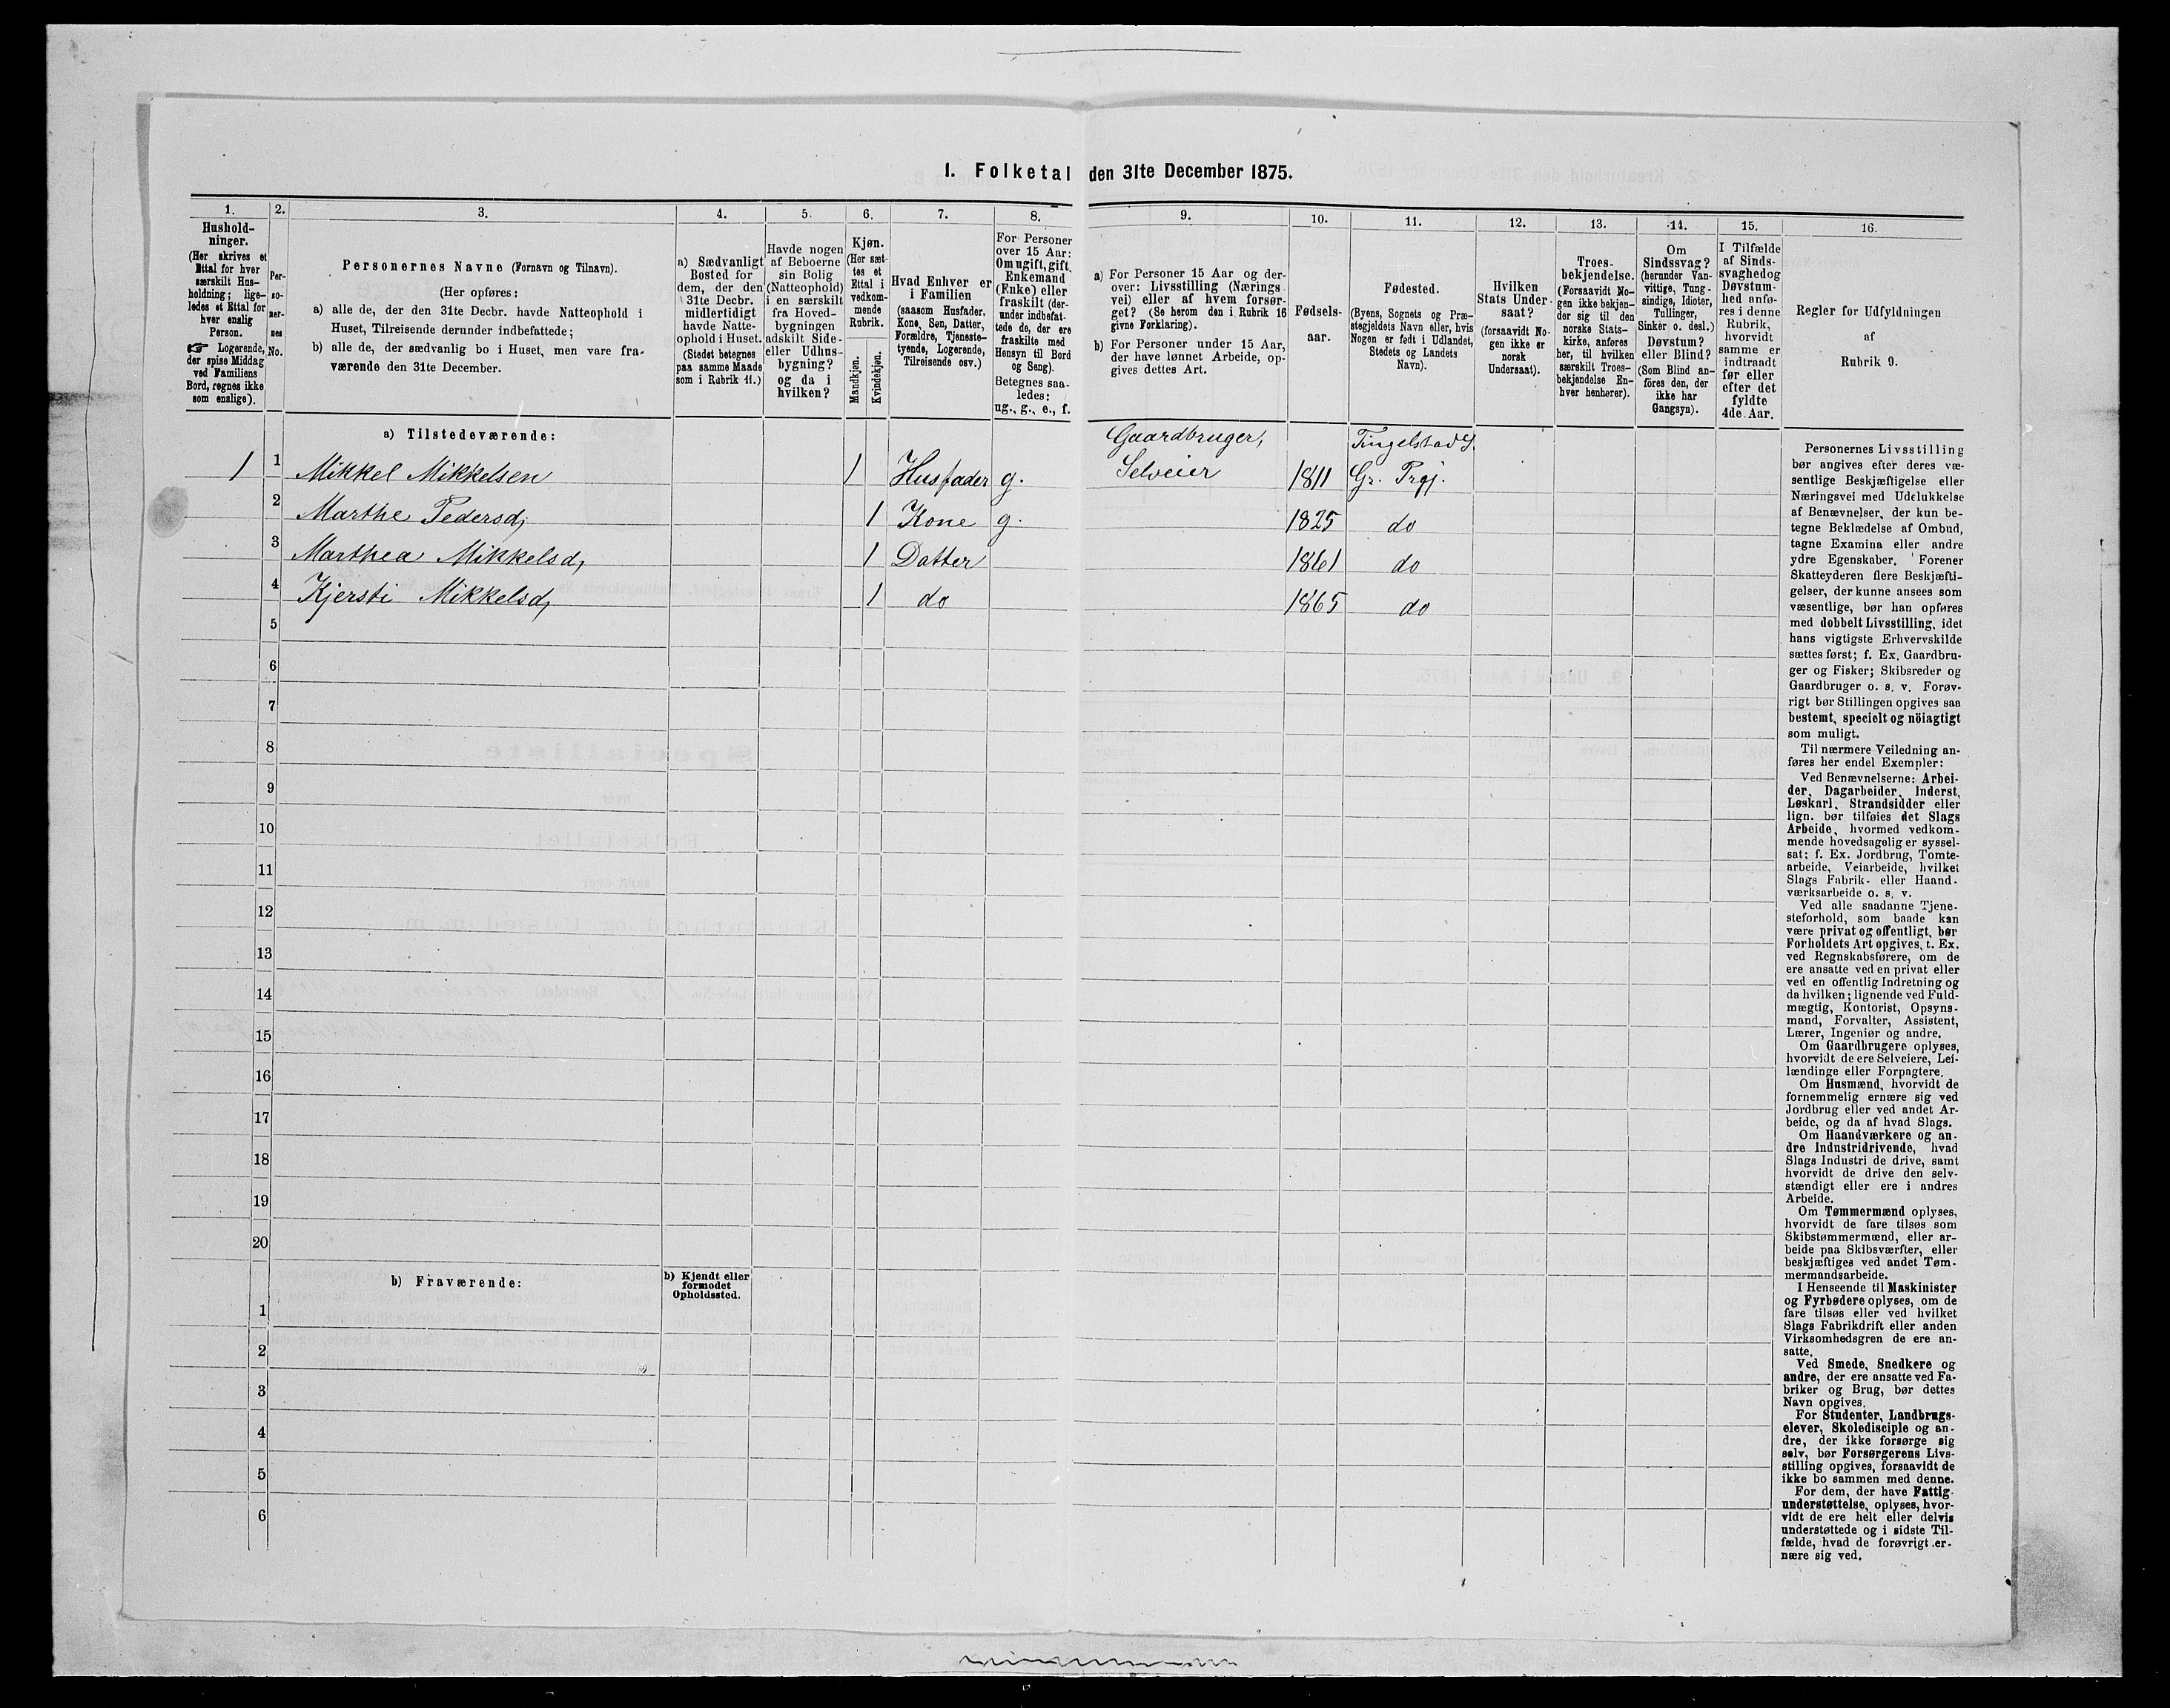 1. Folketal den 31te December 1875.
1.
Hushold-
ninger.
(Her skrives et
Ettal for hver
særskilt Hus-
holdning; lige-
ledes et Ettal for
hver enslig
Person.
☞ Logerende,
der spise Middag
ved Familiens
Bord, regnes ikke
som enslige).
2.
Per-
so-
ner-
nes
No.
3.
Personernes Navne (Fornavn og Tilnavn).
(Her opføres:
a) alle de, der den 31te Decbr. havde Natteophold i
Huset, Tilreisende derunder indbefattede;
b) alle de, der sædvanlig bo i Huset, men vare fra-
værende den 31te December.
4.
a) Sædvanligt
Bosted for
dem, der den
31te Decbr.
midlertidigt
havde Natte-
ophold i Huset.
(Stedet betegnes
paa samme Maade
som i Rubrik 11.)
5.
Havde nogen
af Beboerne
sin Bolig
(Natteophold)
i en særskilt
fra Hoved-
bygningen
adskilt Side-
eller Udhus-
bygning?
og da i
hvilken?
6.
Kjøn.
(Her sæt-
tes et
Ettal i
vedkom-
mende
Rubrik.
Mandkjøn.
Kvindekjøn.
7.
Hvad Enhver er
i Familien
(saasom Husfader,
Kone, Søn, Datter,
Forældre, Tjeneste-
tyende, Logerende,
Tilreisende osv.)
8.
For Personer
over 15 Aar:
Om ugift, gift,
Enkemand
(Enke) eller
fraskilt (der-
under indbefat-
tede de, der ere
fraskilte med
Hensyn til Bord
og Seng).
Betegnes saa-
ledes:
ug., g., e., f.
9.
a) For Personer 15 Aar og der-
over: Livsstilling (Nærings-
vei) eller af hvem forsør-
get? (Se herom den i Rubrik 16
givne Forklaring).
b) For Personer under 15 Aar,
der have lønnet Arbeide, op-
gives dettes Art.
10.
Fødsels-
aar.
11.
Fødested.
(Byens, Sognets og Præ-
stegjeldets Navn eller, hvis
Nogen er født i Udlandet,
Stedets og Landets
Navn).
12.
Hvilken
Stats Under-
saat?
(forsaavidt No-
gen ikke er
norsk
Undersaat).
13.
Troes-
bekjendelse.
(Forsaavidt No-
gen ikke bekjen-
der sig til den
norske Stats-
kirke, anføres
her, til hvilken
særskilt Troes-
bekjendelse En-
hver henhører).
14.
Om
Sindssvag?
(herunder Van-
vittige, Tung-
sindige, Idioter,
Tullinger,
Sinker o. desl.)
Døvstum?
eller Blind?
(Som Blind an-
føres den, der
ikke har
Gangsyn).
15.
I Tilfælde
af Sinds-
svaghed og
Døvstum-
hed anfø-
res i denne
Rubrik,
hvorvidt
samme er
indtraadt
før eller
efter det
fyldte
4de Aar.
16.
Regler for Udfyldningen
af
Rubrik 9.
a) Tilstedeværende:
Gaardbruger, Tingelstad S.
1 1 Mikkel Mikkelsen 1 Husfader g. Selveier 1811 Gr. Prgj.
2 Marthe Pedersd, 1 Kone g. 1825 do
3 Marthea Mikkelsd, 1 Datter 1861 do
4 Kjersti Mikkelsd, 1 do 1865 do
5
6
7
8
9
10
11
12
13
14
15
16
17
18
19
20
b) Fraværende:
b) Kjendt eller
formodet
Opholdssted.
1
2
3
4
5
6
Personernes Livsstilling
bør angives efter deres væ-
sentlige Beskjæftigelse eller
Næringsvei med Udelukkelse
af Benævnelser, der kun be-
tegne Beklædelse af Ombud,
tagne Examina eller andre
ydre Egenskaber. Forener
Skatteyderen flere Beskjæfti-
gelser, der kunne ansees som
væsentlige, bør han opføres
med dobbelt Livsstilling, idet
hans vigtigste Erhvervskilde
sættes først; f. Ex. Gaardbru-
ger og Fisker; Skibsreder og
Gaardbruger o. s. v. Forøv-
rigt bør Stillingen opgives saa
bestemt, specielt og nöiagtigt
som muligt.
Til nærmere Veiledning an-
føres her endel Exempler:
Ved Benævnelserne: Arbei-
der, Dagarbeider, Inderst,
Løskarl, Strandsidder eller
lign. bør tilføies det Slags
Arbeide, hvormed vedkom-
mende hovedsagelig er syssel-
sat; f. Ex. Jordbrug, Tomte-
arbeide, Veiarbeide, hvilket
Slags Fabrik- eller Haand-
værksarbeide o. s. v.
Ved alle saadanne Tjene-
steforhold, som baade kan
være privat og offentligt, bør
Forholdets Art opgives, t. Ex.
ved Regnskabsførere, om de
ere ansatte ved en privat eller
ved en offentlig Indretning og
da hvilken; lignende ved Fuld-
mægtig, Kontorist, Opsyns-
mand, Forvalter, Assistent,
Lærer, Ingeniør og andre.
Om Gaardbrugere oplyses,
hvorvidt de ere Selveiere, Lei-
lændinge eller Forpagtere.
Om Husmænd, hvorvidt de
fornemmelig ernære sig ved
Jordbrug eller ved andet Ar-
beide, og da af hvad Slags.
Om Haandværkere og an-
dre Industridrivende, hvad
Slags Industri de drive, samt
hvorvidt de drive den selv-
stændigt eller ere i andres
Arbeide.
Om Tømmermænd oplyses,
hvorvidt de fare tilsøs som
Skibstømmermænd, eller ar-
beide paa Skibsværfter, eller
beskjæftiges ved andet Tøm-
mermandsarbeide.
I Henseende til Maskinister
og Fyrbødere oplyses, om de
fare tilsøs eller ved hvilket
Slags Fabrikdrift eller anden
Virksomhedsgren de ere an-
satte.
Ved Smede, Snedkere og
andre, der ere ansatte ved Fa-
briker og Brug, bør dettes
Navn opgives.
For Studenter, Landbrugs-
elever, Skoledisciple og an-
dre, der ikke forsørge sig
selv, bør Forsørgerens Livs-
stilling opgives, forsaavidt de
ikke bo sammen med denne.
For dem, der have Fattig-
understøttelse, oplyses, hvor-
vidt de ere helt eller delvis
understøttede og i sidste Til-
fælde, hvad de forøvrigt er-
nære sig ved.